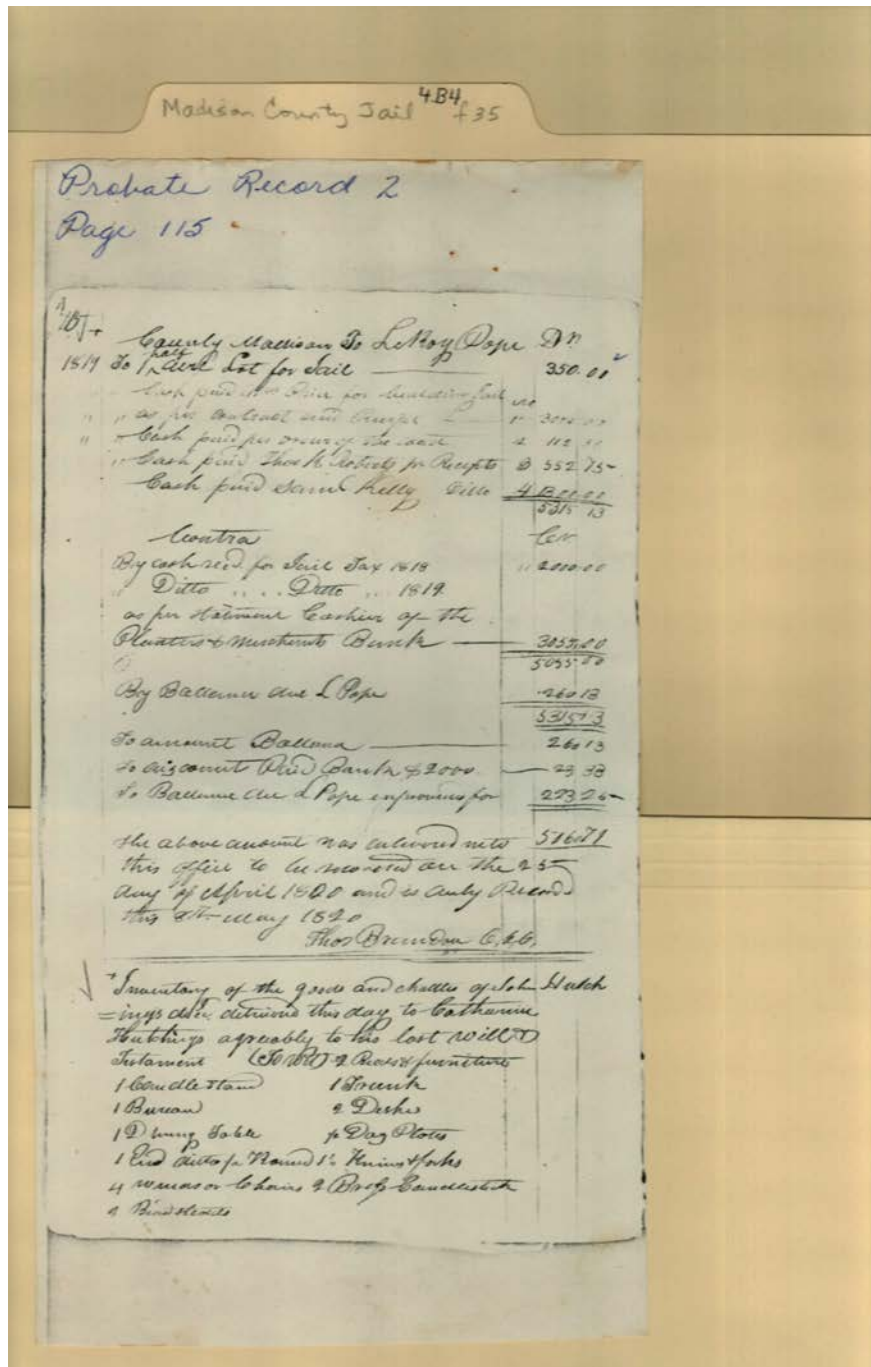 Madison County Jail 4B4 f35
Probate Record 2
Page 115
County Madison To LeRoy Pope Dr
1819 To 1 half Acre Lot for Jail 350.00
Cash paid for building Jail
" " as per contract and 3000.00
" " Cash paid per order of the 112
" Cash paid Thos Roberts pr Receipts 3 552 75
Cash paid Saml Kelly Ditto 4 1300.00
5315 13
Contra Cr
By cash recd for Jail Tax 1818 " 2000.00
" Ditto .. .. Ditto .. 1819
as per Statement Cashier of the
Planters & Merchants Bank 3055.00
5055.00
By Ballance due L Pope 260 13
5315 13
To amount Ballance 260 13
To discount Paid Bank $2000 23 33
To Ballance due L Pope for 233 25
516.71
The above account was delivered into
this office to be recorded on the 25
day of April 1820 and is duly Record
this 8th May 1820
Thos Brandon C.C.C.
Inventory of the goods and chattles of John Hutch
=ings decd. delivered this day to Catharine
Hutchings agreably to his last will &
Testament (To wit) 2 Beds & furniture
1 Candle Stand 1 Trunk
1 Bureau 2 Desks
1 Dining Table
1 End ditto Knives & forks
4 Windsor Chairs 2 Brass Candlestick
2 Bedsteads